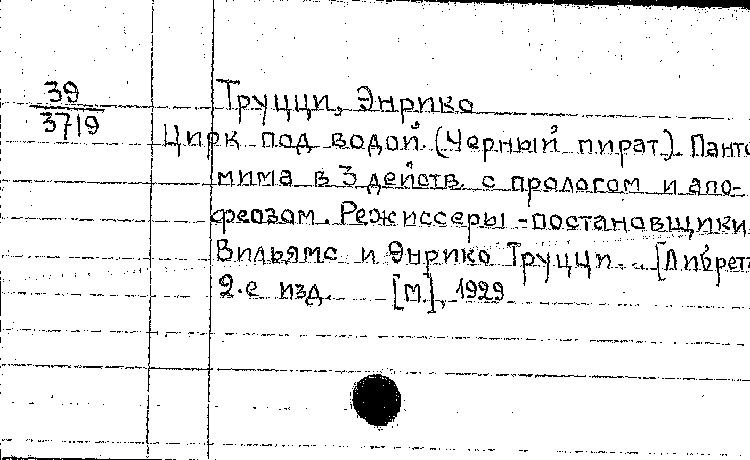 39
3719
Труцци, Энрико
Цирк под водой. (Черный пират). Панто
мима в 3 действ. с прологом и апо-
феозом. Режиссеры-постановщики
Вильямс и Энрико Труцци... [Либрет
2-е изд. [М.], 1929